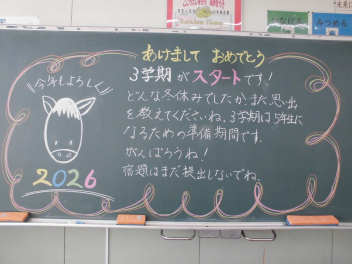 あけまして おめでとう
3学期がスタートです!
どんな冬休みでしたか。また思い出
を教えてくださいね。3学期は5年生に
なるための準備期間です。
がんばろうね!
宿題はまだ提出しないでね。
今年もよろしく
2026